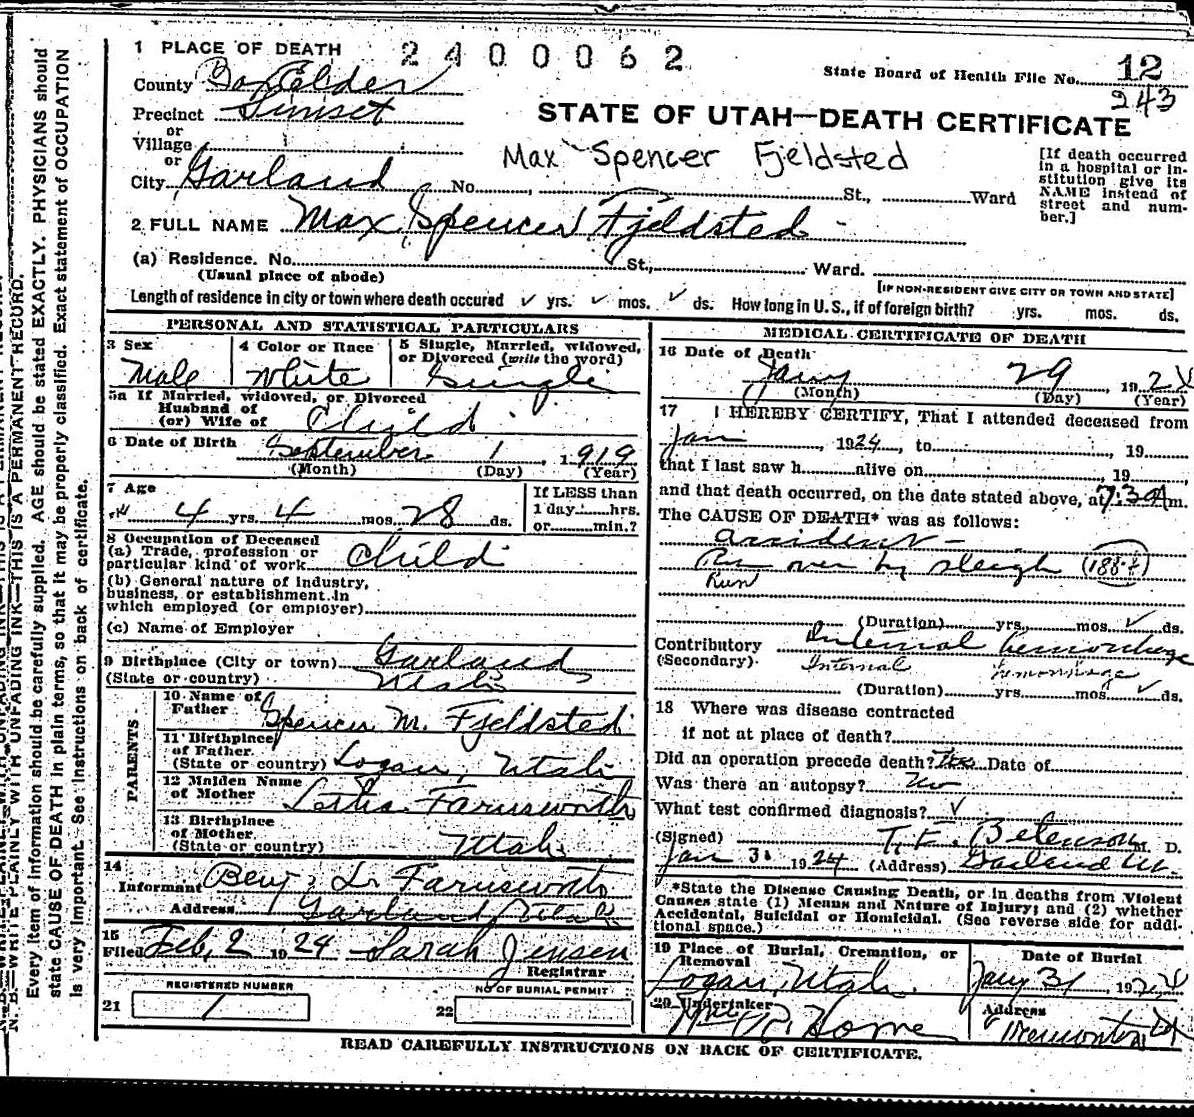 1 PLACE OF DEATH 2400062
State Board of Health File No. 12
243
County Box Elder
Precinct Sunset
or
Village
or
City Garland No. St., Ward
STATE OF UTAH—DEATH CERTIFICATE
Max Spencer Fjeldsted
[If death occurred
in a hospital or in-
stitution give its
NAME instead of
street and num-
ber.]
2 FULL NAME Max Spencer Fjeldsted
(a) Residence. No. St., Ward.
(Usual place of abode)
[IF NON-RESIDENT GIVE CITY OR TOWN AND STATE]
Length of residence in city or town where death occured ✓ yrs. ✓ mos. ✓ ds. How long in U.S., if of foreign birth? yrs. mos. ds.
PERSONAL AND STATISTICAL PARTICULARS
3 Sex 4 Color or Race 5 Single, Married, widowed,
or Divorced (write the word)
Male White Single
5a If Married, widowed, or Divorced
Husband of
(or) Wife of Child
6 Date of Birth September 1, 1919
(Month) (Day) (Year)
7 Age If LESS than
1 day hrs.
4 yrs. 4 mos. 28 ds. or min.?
8 Occupation of Deceased
(a) Trade, profession or
particular kind of work Child
(b) General nature of Industry,
business, or establishment in
which employed (or employer)
(c) Name of Employer
9 Birthplace (City or town) Garland
(State or country) Utah
PARENTS
10 Name of
Father Spencer M. Fjeldsted
11 Birthplace
of Father
(State or country) Logan, Utah
12 Maiden Name
of Mother Farnsworth
13 Birthplace
of Mother
(State or country) Utah
14
Informant Benj. L. Farnsworth
Address Garland, Utah
15
Filed Feb, 2 1924 Sarah Jensen
Registrar
REGISTERED NUMBER NO OF BURIAL PERMIT
21 1 22
MEDICAL CERTIFICATE OF DEATH
16 Date of Death
Jany 29, 192
(Month) (Day) (Year)
17 I HEREBY CERTIFY, That I attended deceased from
Jan, 1924, to 19
that I last saw h alive on 19
and that death occurred, on the date stated above, at 7:30A m.
The CAUSE OF DEATH* was as follows:
accident—
Run over by sleigh
Run
(Duration) yrs. mos. ✓ ds.
Contributory Internal hemorrhage
(Secondary) Internal hemorrhage
(Duration) yrs. mos. ✓ ds.
18 Where was disease contracted
if not at place of death?
Did an operation precede death? Date of
Was there an autopsy? No
What test confirmed diagnosis? ✓
(Signed) T. E. Betenson M. D.
Jan 31 1924 (Address) Garland Ut.
*State the Disease Causing Death, or in deaths from Violent
Causes state (1) Means and Nature of Injury; and (2) whether
Accidental, Suicidal or Homicidal. (See reverse side for addi-
tional space.)
19 Place of Burial, Cremation, or
Removal
Logan, Utah.
Date of Burial
Jany 31, 192
20 Undertaker
Wm R. Horne
Address
Tremonton Ut
READ CAREFULLY INSTRUCTIONS ON BACK OF CERTIFICATE.
N. B.—WRITE PLAINLY WITH UNFADING INK—THIS IS A PERMANENT RECORD.
Every item of information should be carefully supplied. AGE should be stated EXACTLY. PHYSICIANS should
state CAUSE OF DEATH in plain terms, so that it may be properly classified. Exact statement of OCCUPATION
is very important. See instructions on back of certificate.